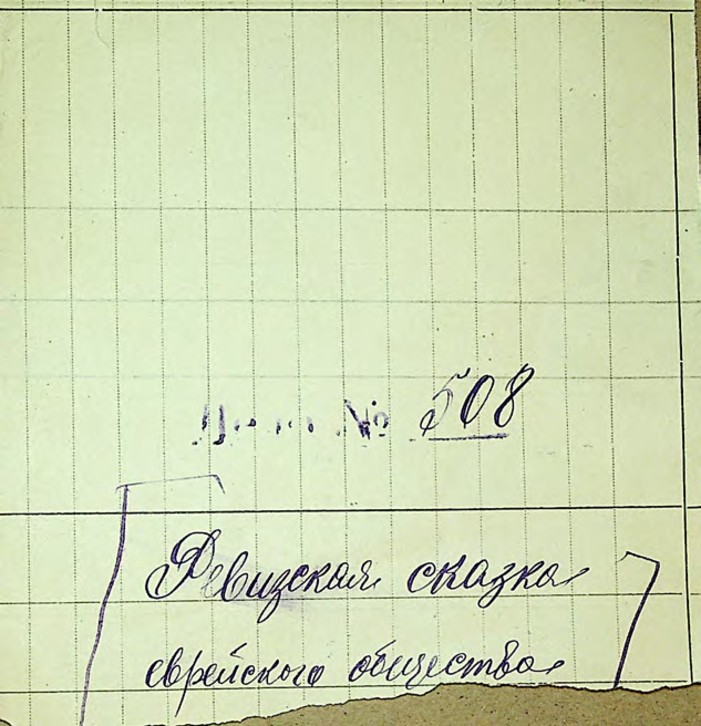 № 508
Ревизская сказка
еврейского общества